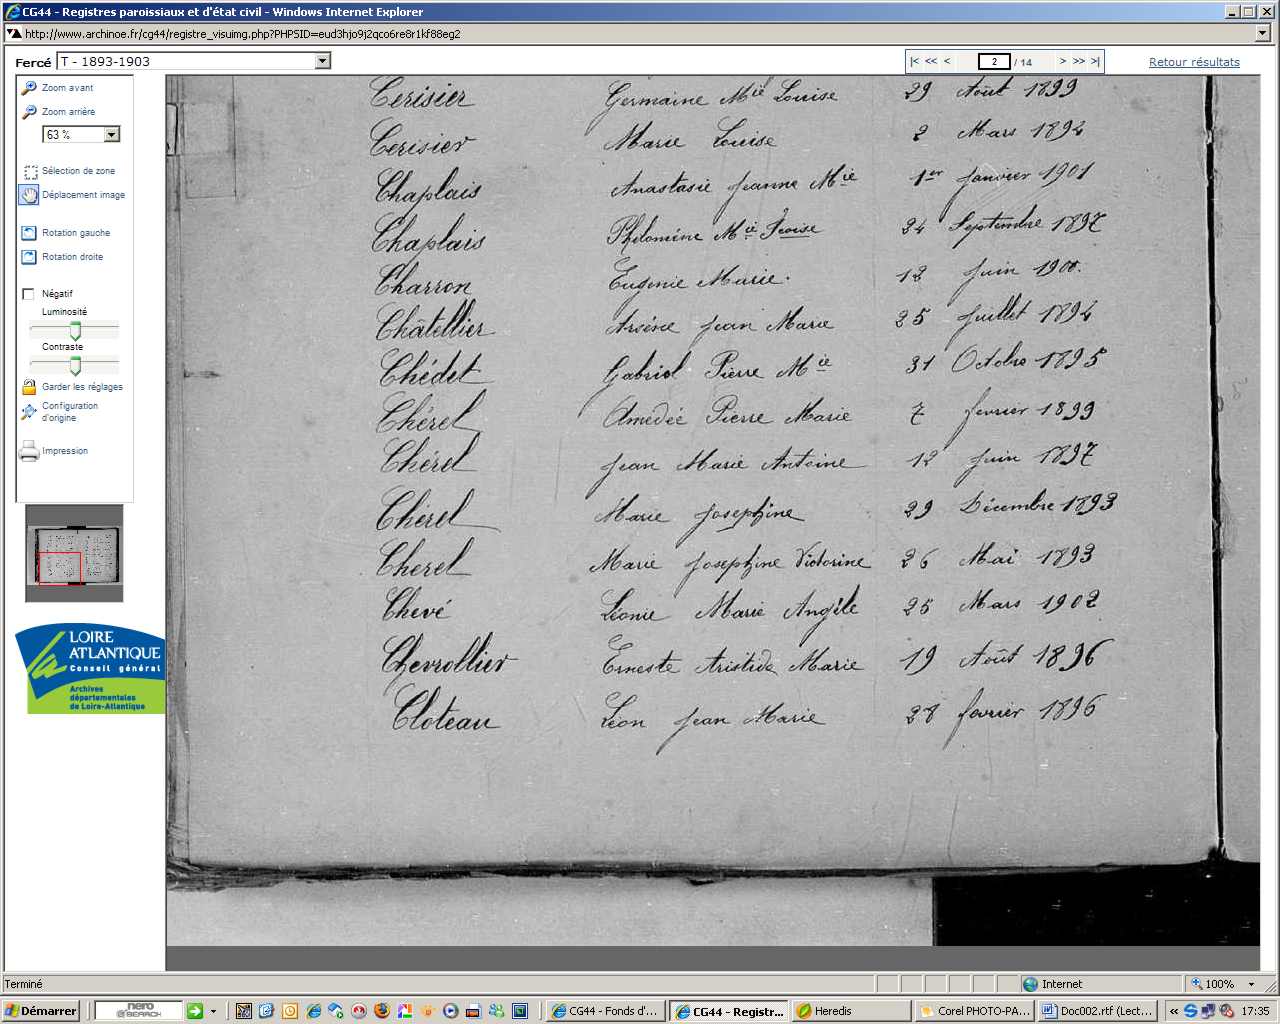 CG44 - Registres paroissiaux et d'état civil - Windows Internet Explorer
http://www.archinoe.fr/cg44/registre_visuimg.php?PHPSID=eud3hjo9j2qco6re8r1kf88eg2
Fercé T - 1893-1903 |< << < 2 / 14 > >> >| Retour résultats
Zoom avant
Zoom arrière
63 %
Sélection de zone
Déplacement image
Rotation gauche
Rotation droite
Négatif
Luminosité
Contraste
Garder les réglages
Configuration
d'origine
Impression
LOIRE
ATLANTIQUE
Conseil général
Archives
départementales
de Loire-Atlantique
Cerisier Germaine Mie Louise 29 Août 1899
Cerisier Marie Louise 2 Mars 1894
Chaplais Anastasie Jeanne Mie 1er Janvier 1901
Chaplais Philomène Mie Fcoise 24 Septembre 1897
Charron Eugenie Marie. 12 Juin 1900.
Châtellier Arsène Jean Marie 25 Juillet 1894
Chédet Gabriel Pierre Mie 31 Octobre 1895
Chérel Amédée Pierre Marie 7 fevrier 1899
Chérel Jean Marie Antoine 12 Juin 1897
Chérel Marie Josephine 29 Décembre 1893
Cherel Marie Josephine Victorine 26 Mai 1893
Chevé Léonie Marie Angèle 25 Mars 1902
Chevrollier Erneste Aristide Marie 19 Août 1896
Cloteau Léon Jean Marie 28 fevrier 1896
Terminé Internet 100%
Démarrer nero SEARCH CG44 - Fonds d'... CG44 - Registr... Heredis Corel PHOTO-PA... Doc002.rtf (Lect... « 17:35